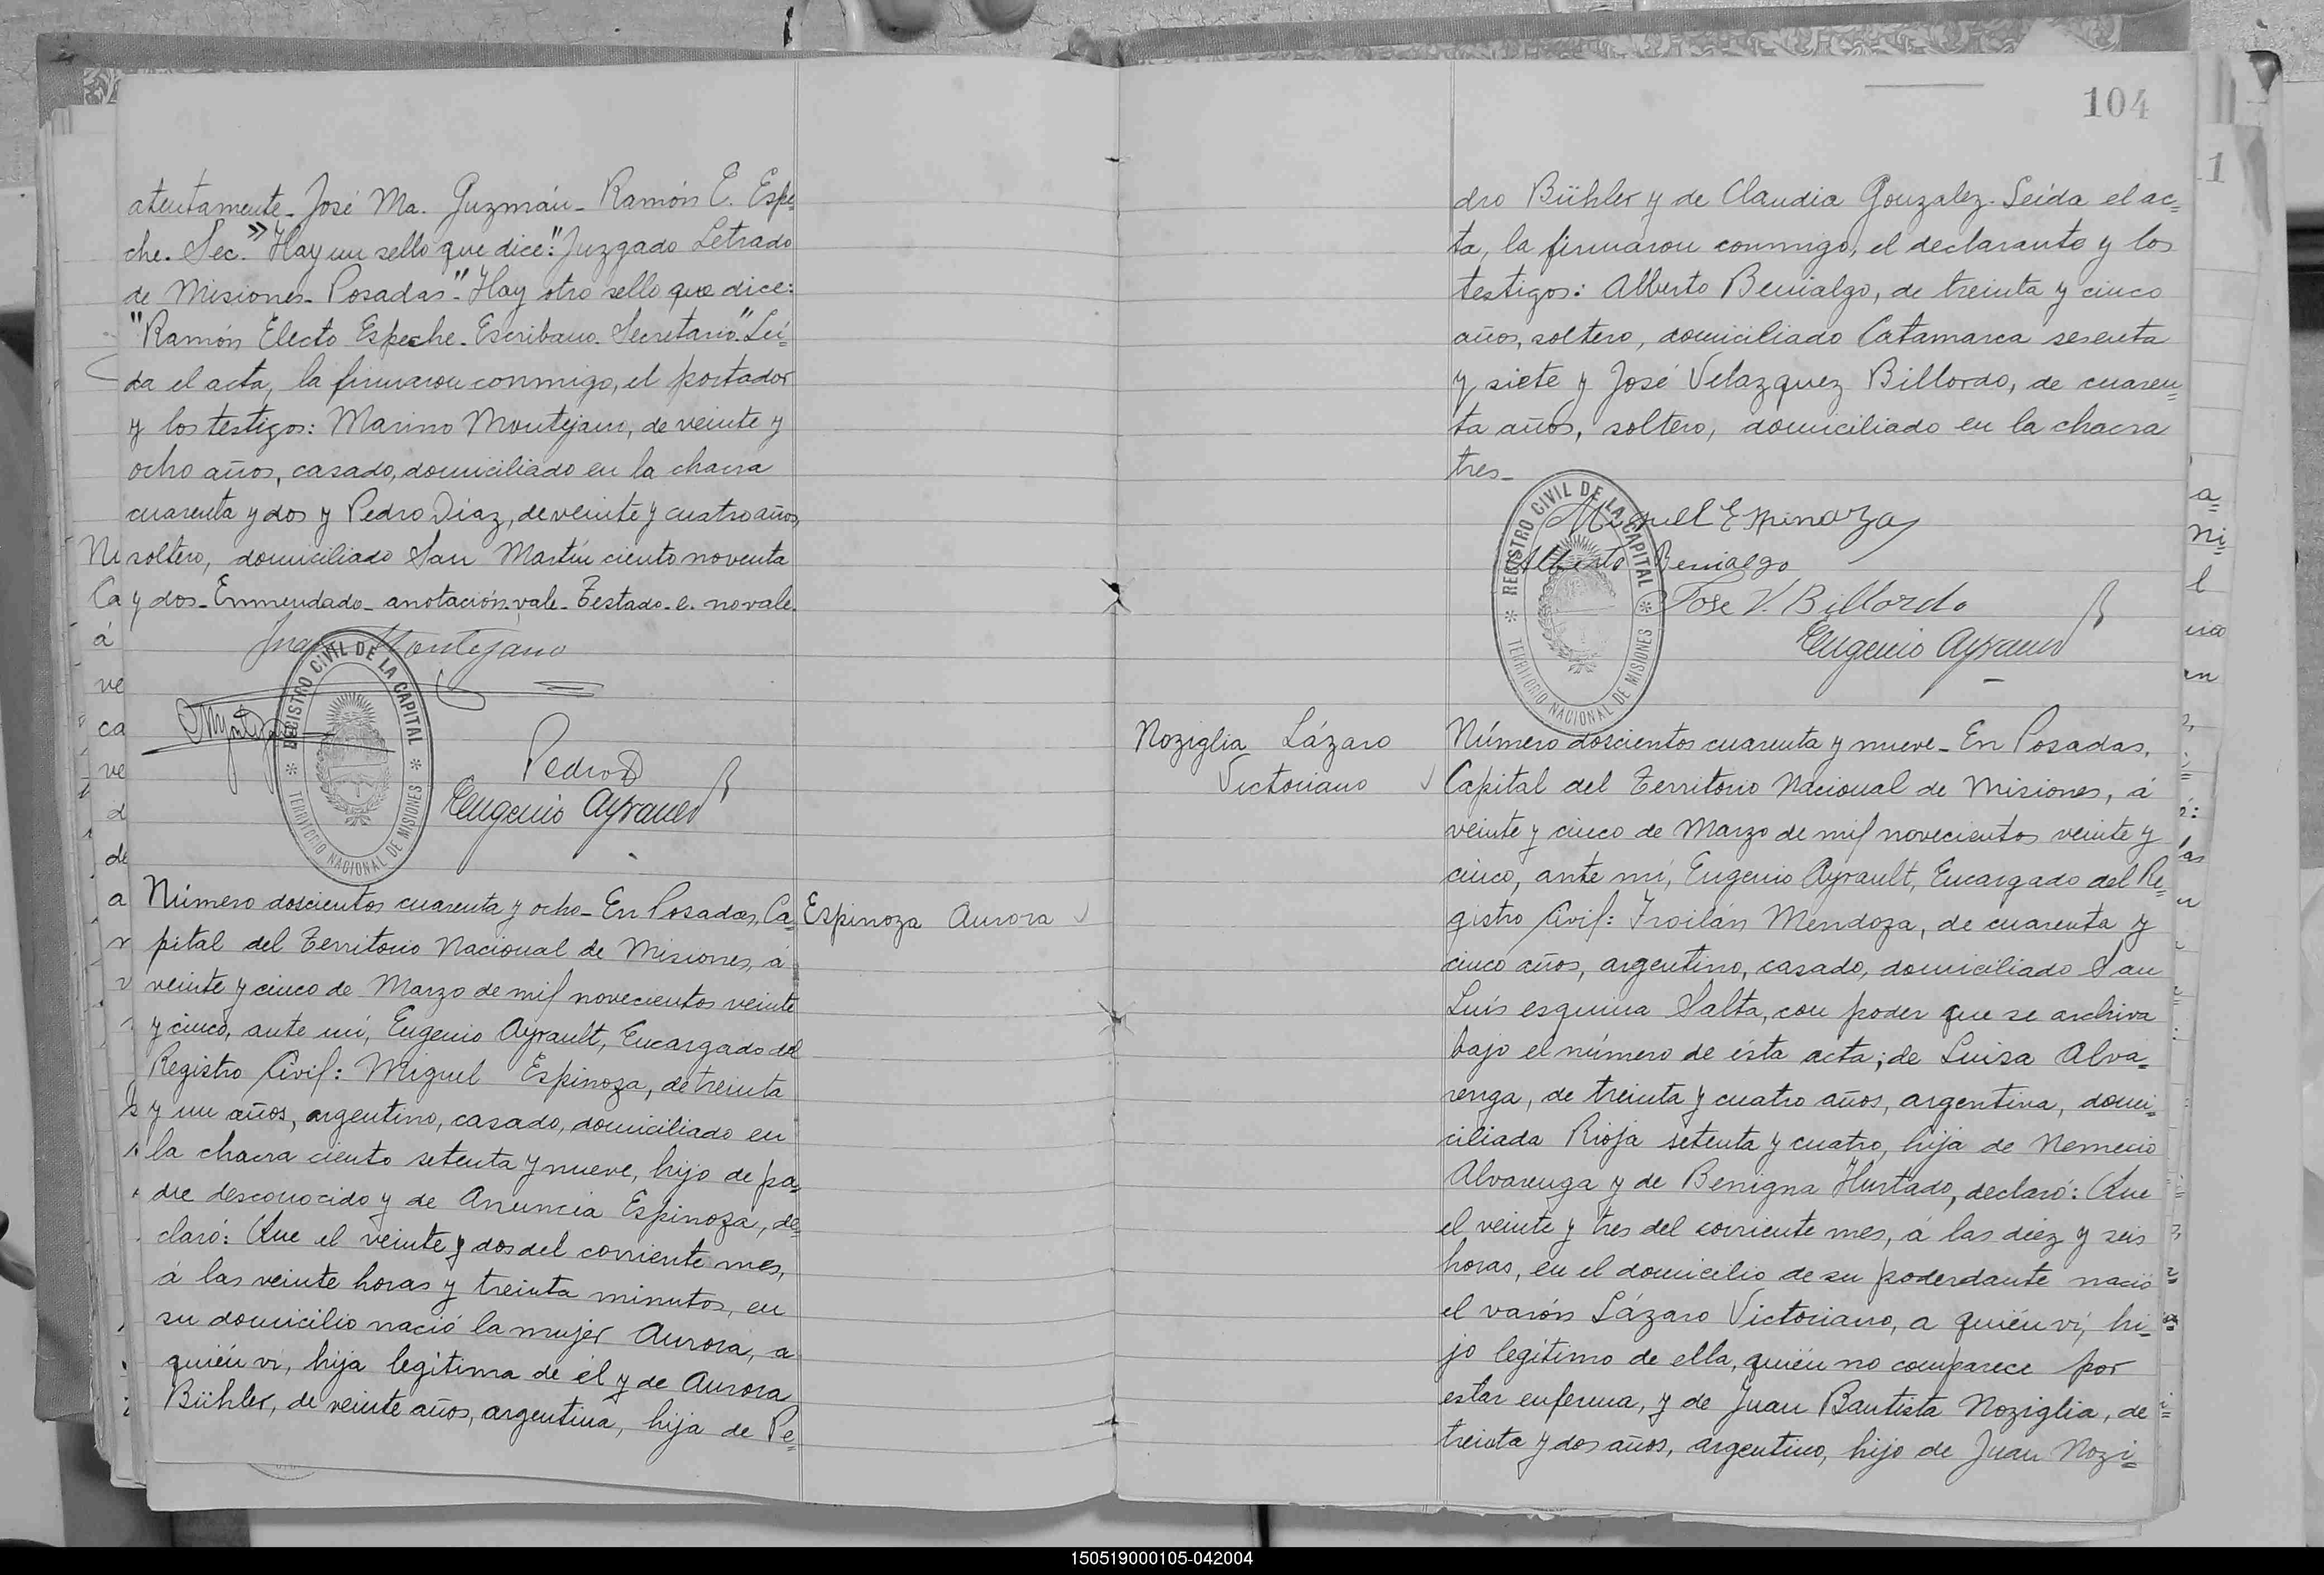 atentamente_ José Ma. Guzmán_ Ramón E. Espe=
che. Sec." Hay un sello que dice: "Juzgado Letrado
de Misiones_ Posadas". Hay otro sello que dice:
"Ramón Electo Espeche_ Escribano_ Secretario". Leí=
da el acta, la firmaron conmigo, el portador
y los testigos: Marino Montejano, de veinte y
ocho años, casado, domiciliado en la chacra
cuarenta y dos y Pedro Díaz, de veinte y cuatro años,
soltero, domiciliado San Martín ciento noventa
y dos_ Enmendado_ anotación, vale_ Testado_ e. no vale.
Juan Montejano
REGISTRO CIVIL DE LA CAPITAL
TERRITORIO NACIONAL DE MISIONES
Pedro D
Eugenio Ayrault
Número doscientos cuarenta y ocho_ En Posadas, Ca=
Espinoza Aurora
pital del Territorio Nacional de Misiones, á
veinte y cinco de Marzo de mil novecientos veinte
y cinco, ante mí, Eugenio Ayrault, Encargado del
Registro Civil: Miguel Espinoza, de treinta
y un años, argentino, casado, domiciliado en
la chacra ciento setenta y nueve, hijo de pa=
dre desconocido y de Anuncia Espinoza, de=
claró: Que el veinte y dos del corriente mes,
á las veinte horas y treinta minutos, en
su domicilio nació la mujer Aurora, a
quién vi, hija legítima de él y de Aurora
Bühler, de veinte años, argentina, hija de Pe=
104
dro Bühler y de Claudia Gonzalez. Leída el ac=
ta, la firmaron conmigo, el declarante y los
testigos: Alberto Benialgo, de treinta y cinco
años, soltero, domiciliado Catamarca sesenta
y siete y José Velazquez Billordo, de cuaren=
ta años, soltero, domiciliado en la chacra
tres_
REGISTRO CIVIL DE LA CAPITAL
TERRITORIO NACIONAL DE MISIONES
Miguel Espinoza
Alberto Benialgo
Jose V. Billordo
Eugenio Ayrault
Noziglia Lázaro
Victoriano
Número doscientos cuarenta y nueve_ En Posadas,
Capital del Territorio Nacional de Misiones, á
veinte y cinco de Marzo de mil novecientos veinte y
cinco, ante mí, Eugenio Ayrault, Encargado del Re=
gistro Civil: Troilán Mendoza, de cuarenta y
cinco años, argentino, casado, domiciliado San
Luís esquina Salta, con poder que se archiva
bajo el número de ésta acta; de Luisa Alva=
renga, de treinta y cuatro años, argentina, domi=
ciliada Rioja setenta y cuatro, hija de Nemecio
Alvarenga y de Benigna Hurtado, declaró: Que
el veinte y tres del corriente mes, á las diez y seis
horas, en el domicilio de su poderdante nació
el varón Lázaro Victoriano, a quién vi, hi=
jo legítimo de ella, quién no comparece por
estar enferma, y de Juan Bautista Noziglia, de
treinta y dos años, argentino, hijo de Juan Nozi=
150519000105-042004